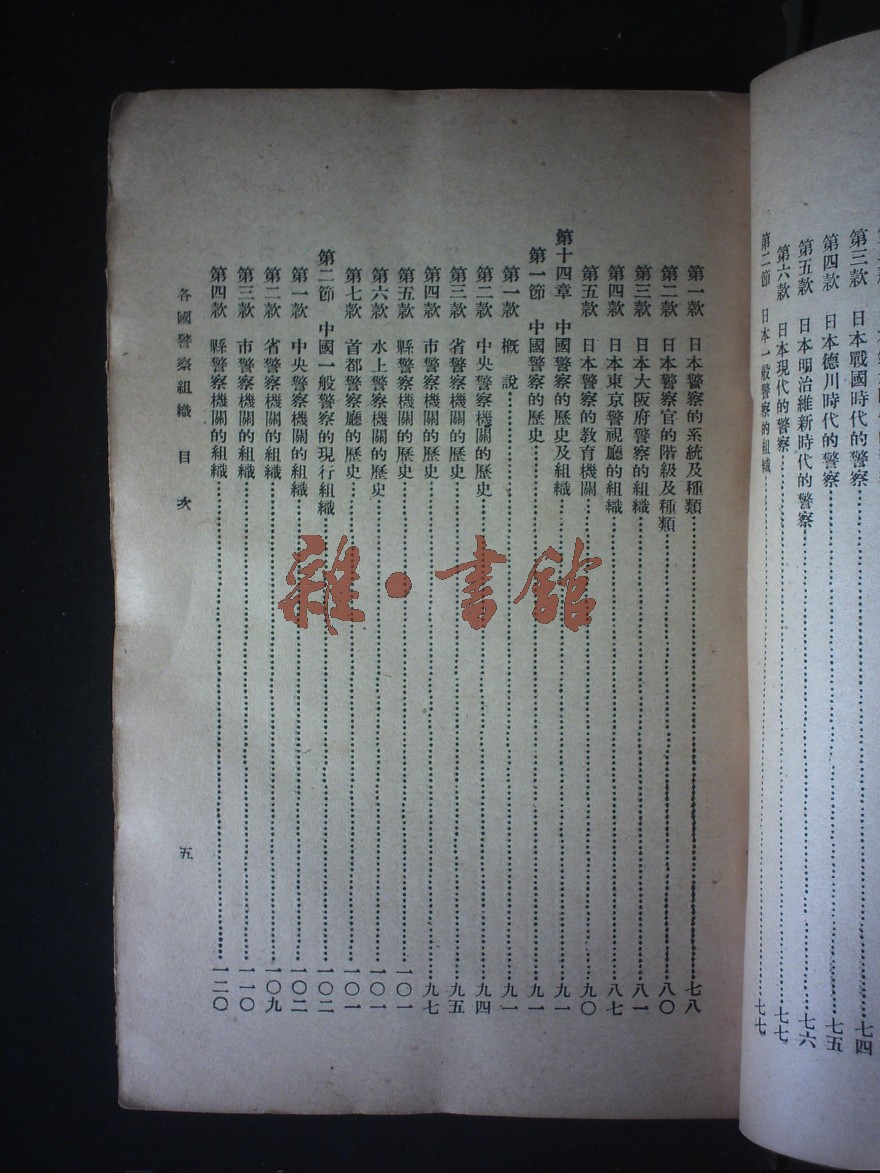 第三款　日本戰國時代的警察………七四
第四款　日本德川時代的警察………七五
第五款　日本明治維新時代的警察………七六
第六款　日本現代的警察………七七
第二節　日本一般警察的組織………七七
第一款　日本警察的系統及種類………七八
第二款　日本警察官的階級及種類………八〇
第三款　日本大阪府警察的組織………八一
第四款　日本東京警視廳的組織………八七
第五款　日本警察的教育機關………九〇
第十四章　中國警察的歷史及組織………九一
第一節　中國警察的歷史………九一
第一款　概　說………九一
第二款　中央警察機關的歷史………九四
第三款　省警察機關的歷史………九五
第四款　市警察機關的歷史………九七
第五款　縣警察機關的歷史………一〇一
第六款　水上警察機關的歷史………一〇一
第七款　首都警察廳的歷史………一〇一
第二節　中國一般警察的現行組織………一〇二
第一款　中央警察機關的組織………一〇二
第二款　省警察機關的組織………一〇九
第三款　市警察機關的組織………一一〇
第四款　縣警察機關的組織………一二〇
各國警察組織　目　次
五
雜·書館